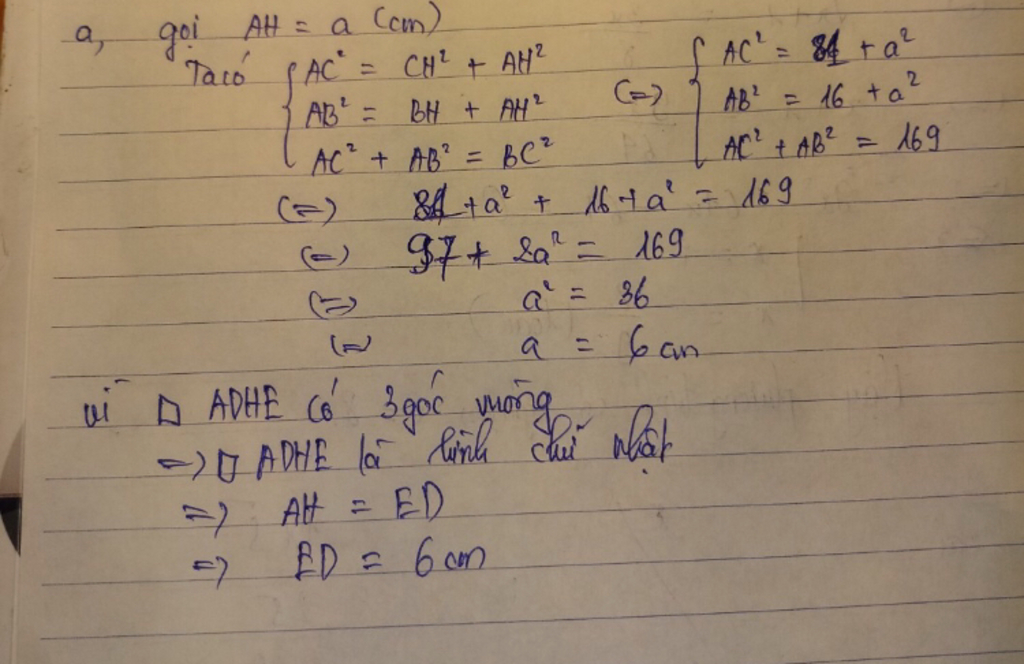 a, gọi AH = a (cm)
Ta có { AC² = CH² + AH² (=) { AC² = 81 + a²
AB² = BH + AH² AB² = 16 + a²
AC² + AB² = BC² AC² + AB² = 169
(=) 81 + a² + 16 + a² = 169
(=) 97 + 2a² = 169
(=) a² = 36
(=) a = 6 cm
vì □ ADHE có 3 góc vuông
=> □ ADHE là hình chữ nhật
=> AH = ED
=> ED = 6 cm